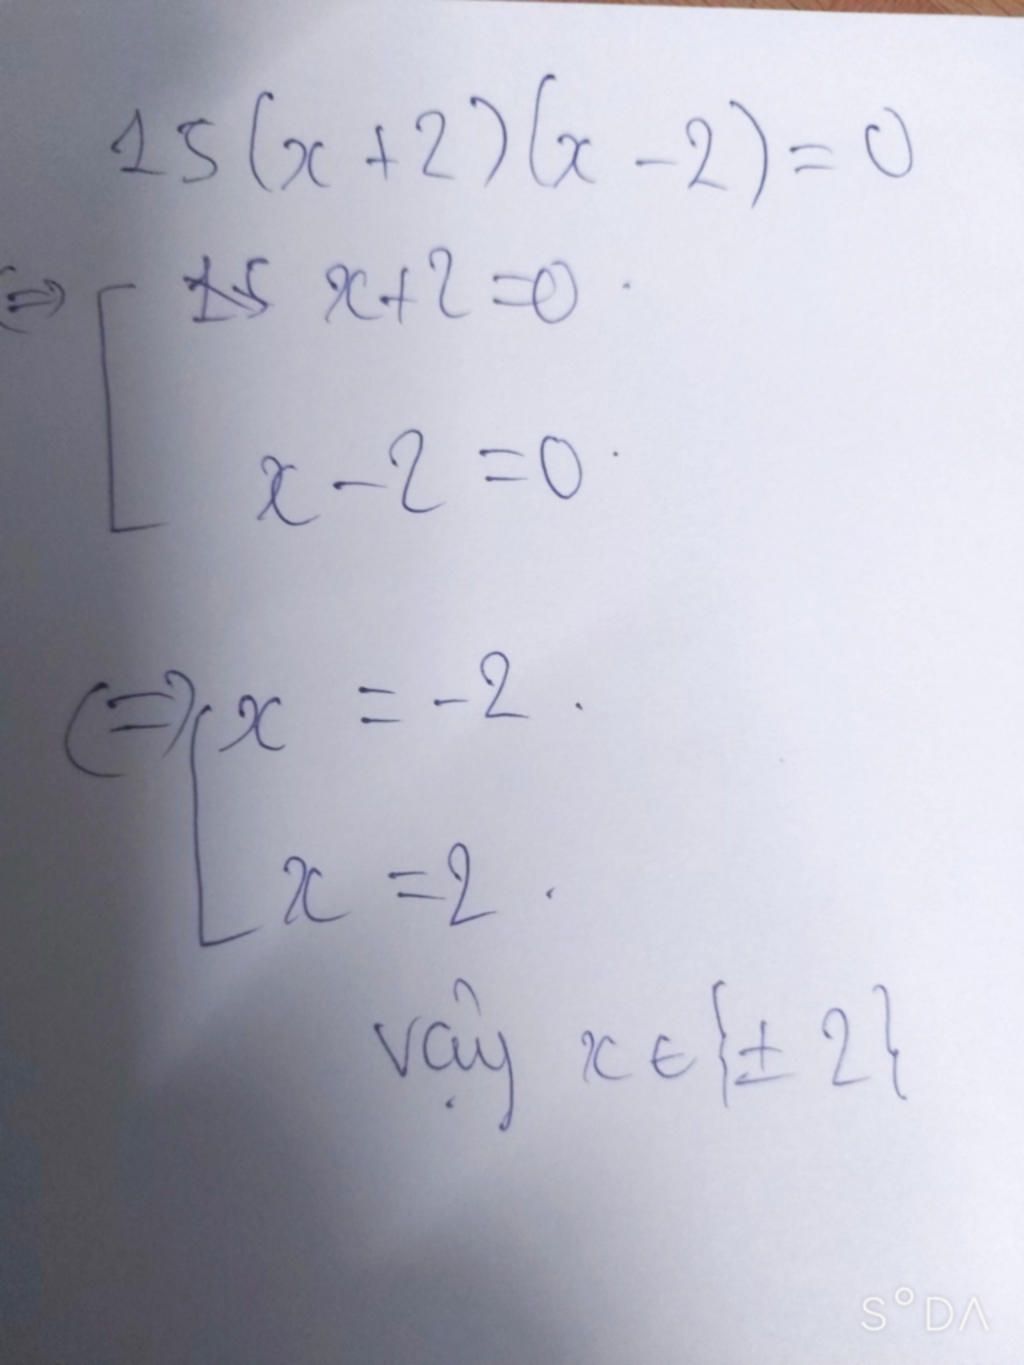 15(x+2)(x-2)=0
(=) [ x+2=0.
x-2=0.
(=) [ x = -2.
x = 2.
vậy x ∈ {± 2}
SODA